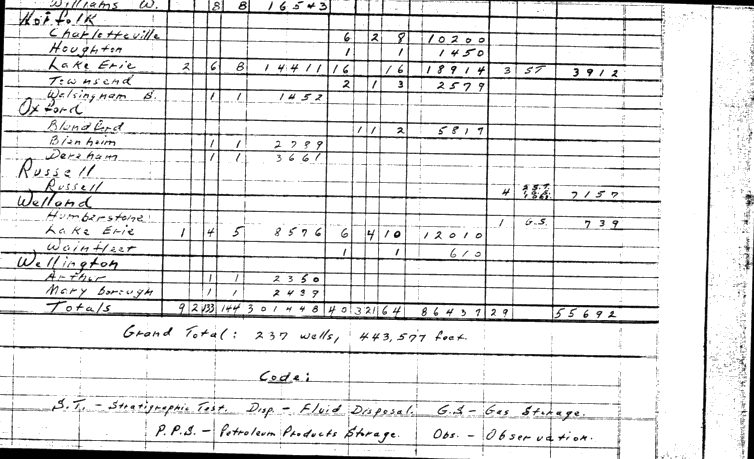 Williams W. 8 8 16543
Norfolk
Charlotteville 6 2 8 10200
Houghton 1 1 1450
Lake Erie 2 6 8 14411 16 16 18914 3 ST 3912
Townsend 2 1 3 2579
Walsingham B. 1 1 1452
Oxford
Blandford 1 1 2 5817
Blenheim 1 1 2789
Dereham 1 1 3661
Russell
Russell 4 7157
Welland
Humberstone 1 G.S. 739
Lake Erie 1 4 5 8576 6 4 10 12010
Wainfleet 1 1 610
Wellington
Arthur 1 1 2350
Maryborough 1 1 2439
Totals 9 2 133 144 301448 40 3 21 64 86437 29 55692
Grand Total: 237 wells, 443,577 feet.
Code:
S.T. - Stratigraphic Test. Disp. - Fluid Disposal. G.S - Gas Storage.
P.P.S. - Petroleum Products Storage. Obs. - Observation.